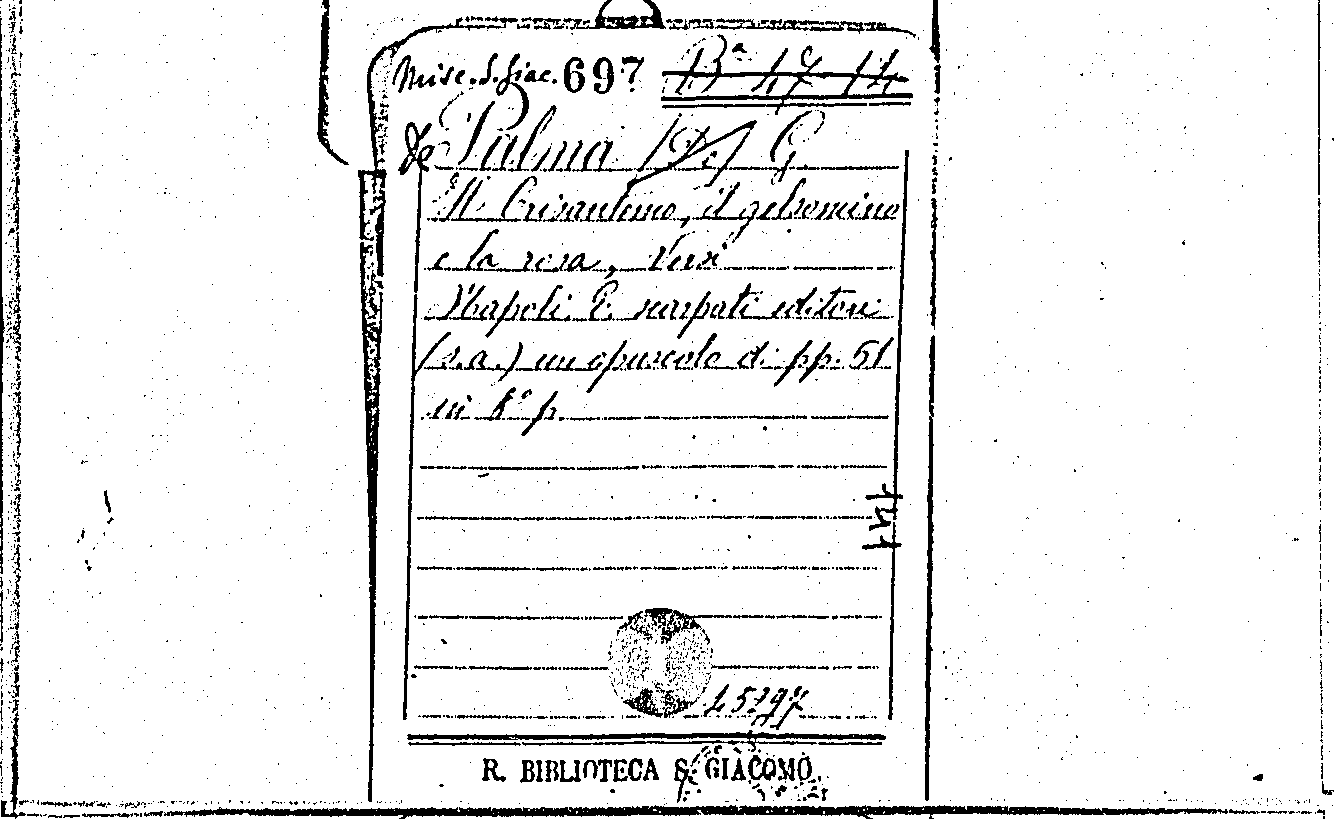 Misc. S. Giac. 697 Bª 17 14
de Palma (De) G.
Il Crisantemo, il gelsomino
e la rosa, Versi
Napoli. E. scarpati editore
(s.a.) un opuscolo di pp. 51
in 8º p.
45297
R. BIBLIOTECA S. GIACOMO.